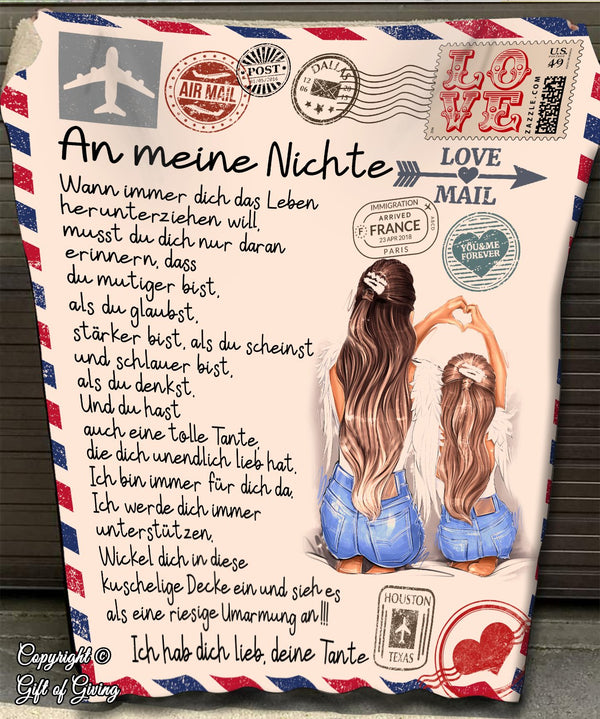 AIR MAIL
POST
05/09/2016
DALLAS
12
06
28
13
LOVE
U.S.
49
ZAZZLE.COM
An meine Nichte
LOVE
MAIL
Wann immer dich das Leben
herunterziehen will,
musst du dich nur daran
erinnern, dass
du mutiger bist,
als du glaubst,
stärker bist, als du scheinst
und schlauer bist,
als du denkst.
Und du hast
auch eine tolle Tante,
die dich unendlich lieb hat.
Ich bin immer für dich da.
Ich werde dich immer
unterstützen.
Wickel dich in diese
kuschelige Decke ein und sieh es
als eine riesige Umarmung an!!!
Ich hab dich lieb, deine Tante
IMMIGRATION
ARRIVED
F FRANCE
23 APR 2018
PARIS
YOU&ME
FOREVER
HOUSTON
TEXAS
Copyright ©
Gift of Giving